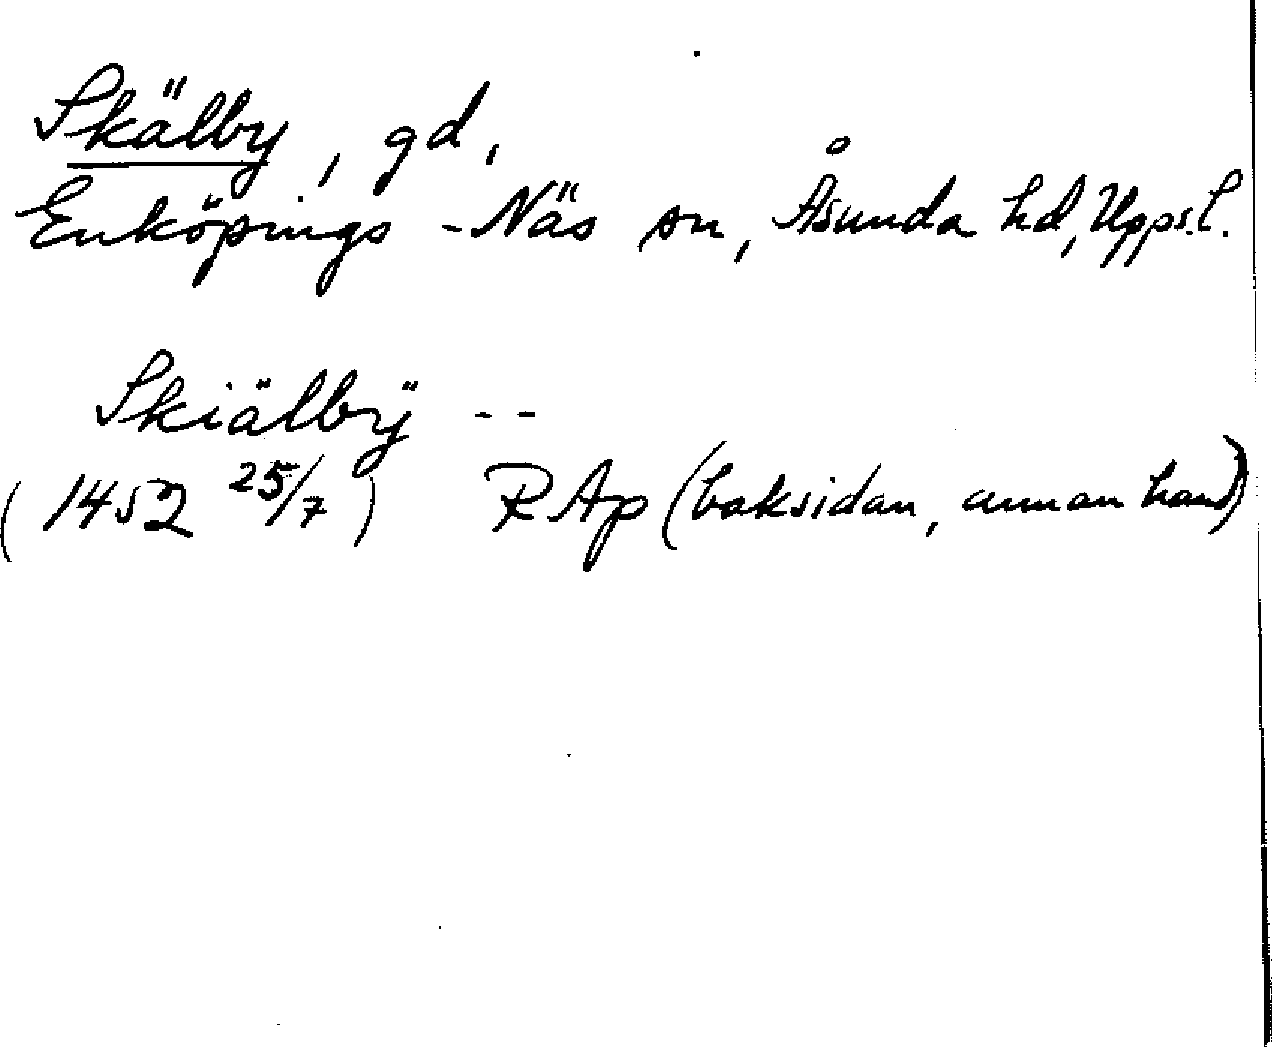 Skälby, gd,
Enköpings-Näs sn, Åsunda hd, Upps.l.
Skiälbÿ - -
(1452 25/7) RAp (baksidan, annan hand)